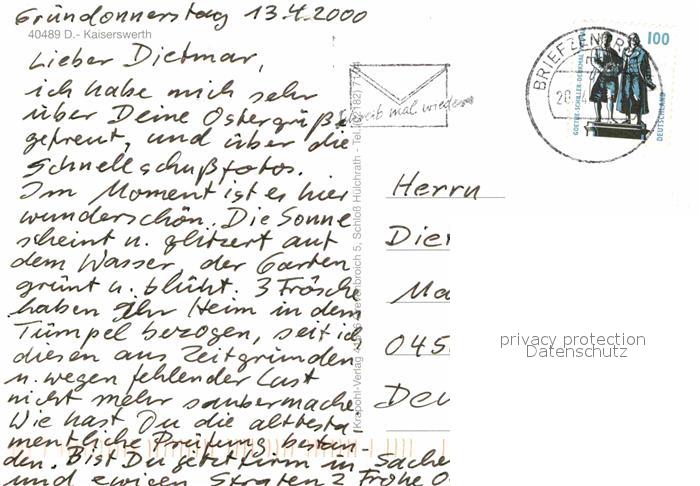 Gründonnerstag 13.4.2000
40489 D.- Kaiserswerth
Lieber Dietmar,
ich habe mich sehr
über Deine Ostergrüße
gefreut, und über die
Schnellschußfotos.
Im Moment ist es hier
wunderschön. Die Sonne
scheint u. glitzert auf
dem Wasser, der Garten
grünt u. blüht. 3 Frösche
haben Ihr Heim in dem
Tümpel bezogen, seit ich
diesen aus Zeitgründen
u. wegen fehlender Lust
nicht mehr saubermache.
Wie hast Du die alttesta
mentliche Prüfung bestan-
den. Bist Du jetzt firm in Sachen
und ewigen Strafen? Frohe O
Krapohl-Verlag Grevenbroich 5, Schloß Hülchrath - Tel. (02182)
Schreib mal wieder
BRIEFZENTRUM
GOETHE-SCHILLER-DENKMAL
100
DEUTSCHLAND
Herrn
Die
Ma
045
privacy protection
Datenschutz